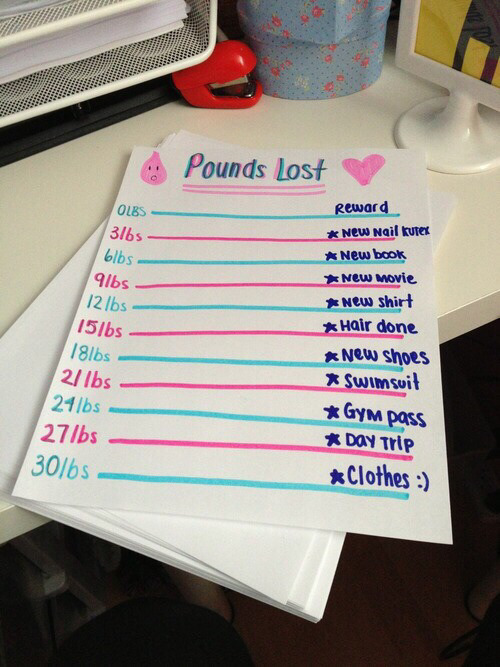 Pounds Lost
0LBS Reward
3lbs ★ New Nail Kutex
6lbs ★ New book
9lbs ★ New Movie
12lbs ★ New shirt
15lbs ★ Hair done
18lbs ★ New shoes
21lbs ★ Swimsuit
24lbs ★ Gym pass
27lbs ★ Day Trip
30lbs ★ Clothes :)